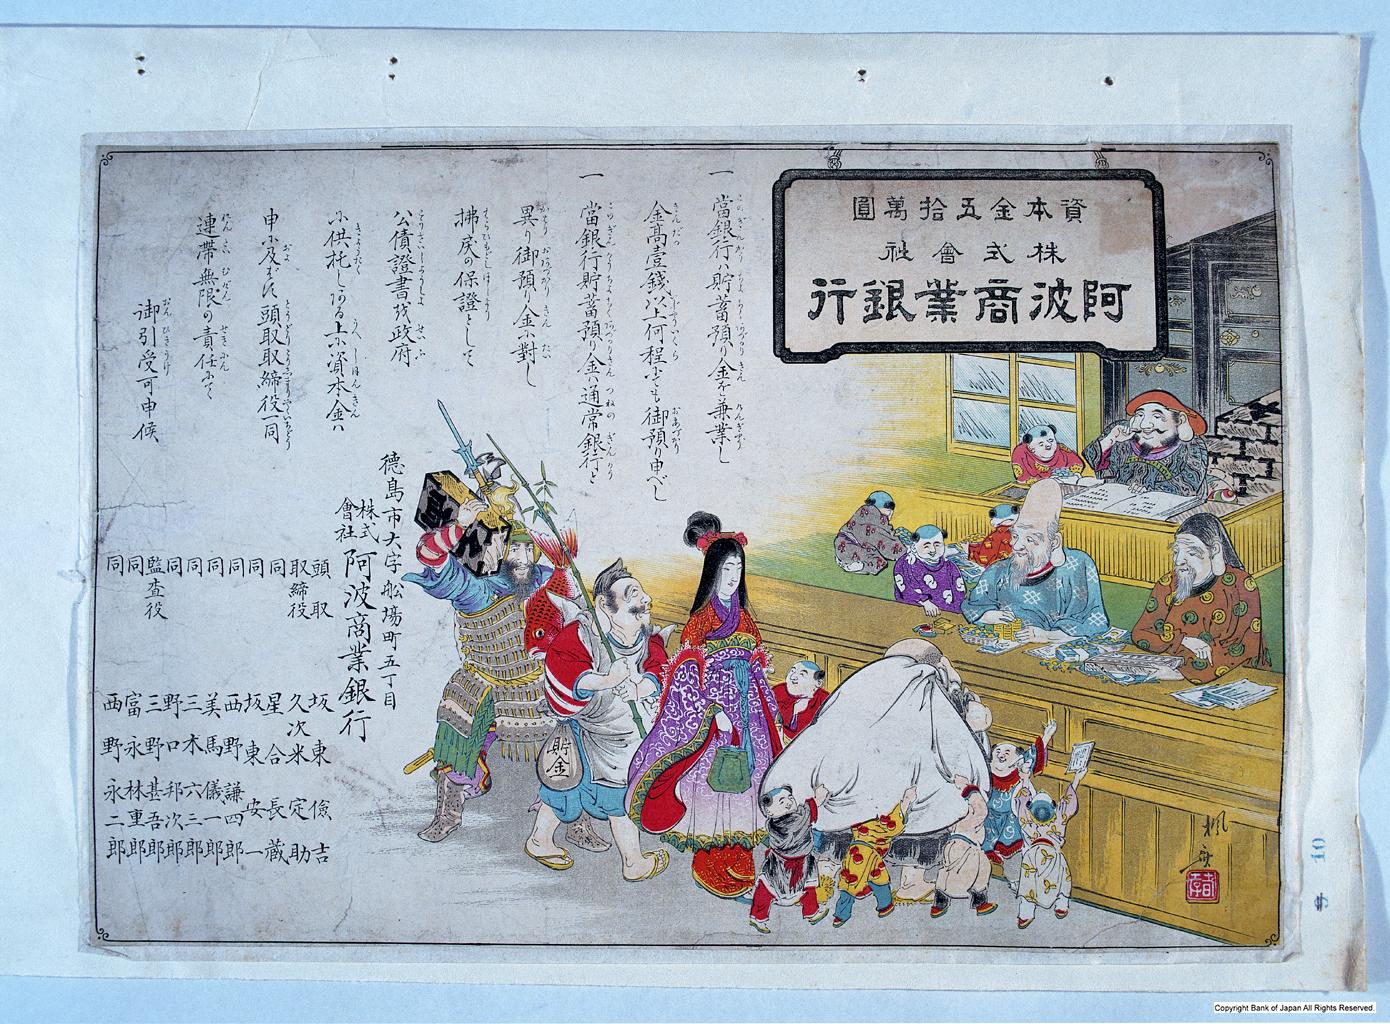 資本金五拾萬圓
株式會社
阿波商業銀行
一當銀行ハ貯蓄預り金を兼業し
金高壹銭以上何程にても御預り申べし
一當銀行貯蓄預り金ハ通常銀行と
異り御預り金に對し
拂戻の保證として
公債證書を政府
に供托しある上に資本金ハ
申に及ばず頭取取締役一同
連帯無限の責任にて
御引受可申候
徳島市大字船場町五丁目
株式會社 阿波商業銀行
頭取 坂東儉吉
取締役 久次米定助
同 星合長蔵
同 坂東安一
同 西野謙四郎
同 美馬儀一郎
同 三木六三郎
同 野口邦次郎
監査役 三野甚吾郎
同 富永林重郎
同 西野永二郎
貯金
Copyright Bank of Japan All Rights Reserved.